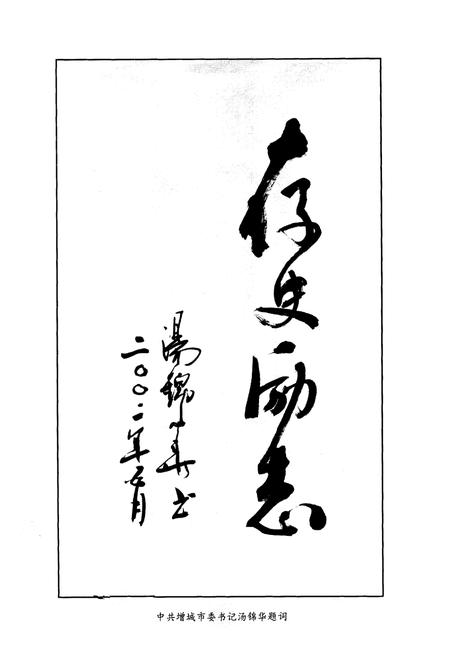 存史励志
湯錦华书
二〇〇二年五月
中共增城市委书记汤锦华题词